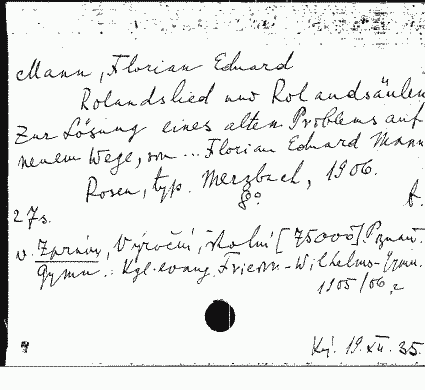 Mann, Florian Eduard
Rolandslied und Rolandsäulen
Zur Lösung eines alten Problems auf
neuem Wege, von ... Florian Eduard Mann
Posen, typ. Merzbach, 1906.
8°
27s.
v. Zprávy, Výroční, školní [75000] Poznań.
Gymn. Kgl. evang. Friedr.-Wilhelms-Gymn.
1905/06
Kř. 19.XII.35.